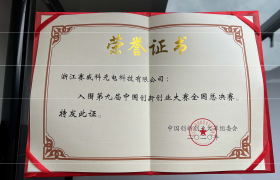 荣誉证书
浙江赛威科光电科技有限公司：
入围第九届中国创新创业大赛全国总决赛。
特发此证。
中国创新创业大赛组委会
二〇二〇年